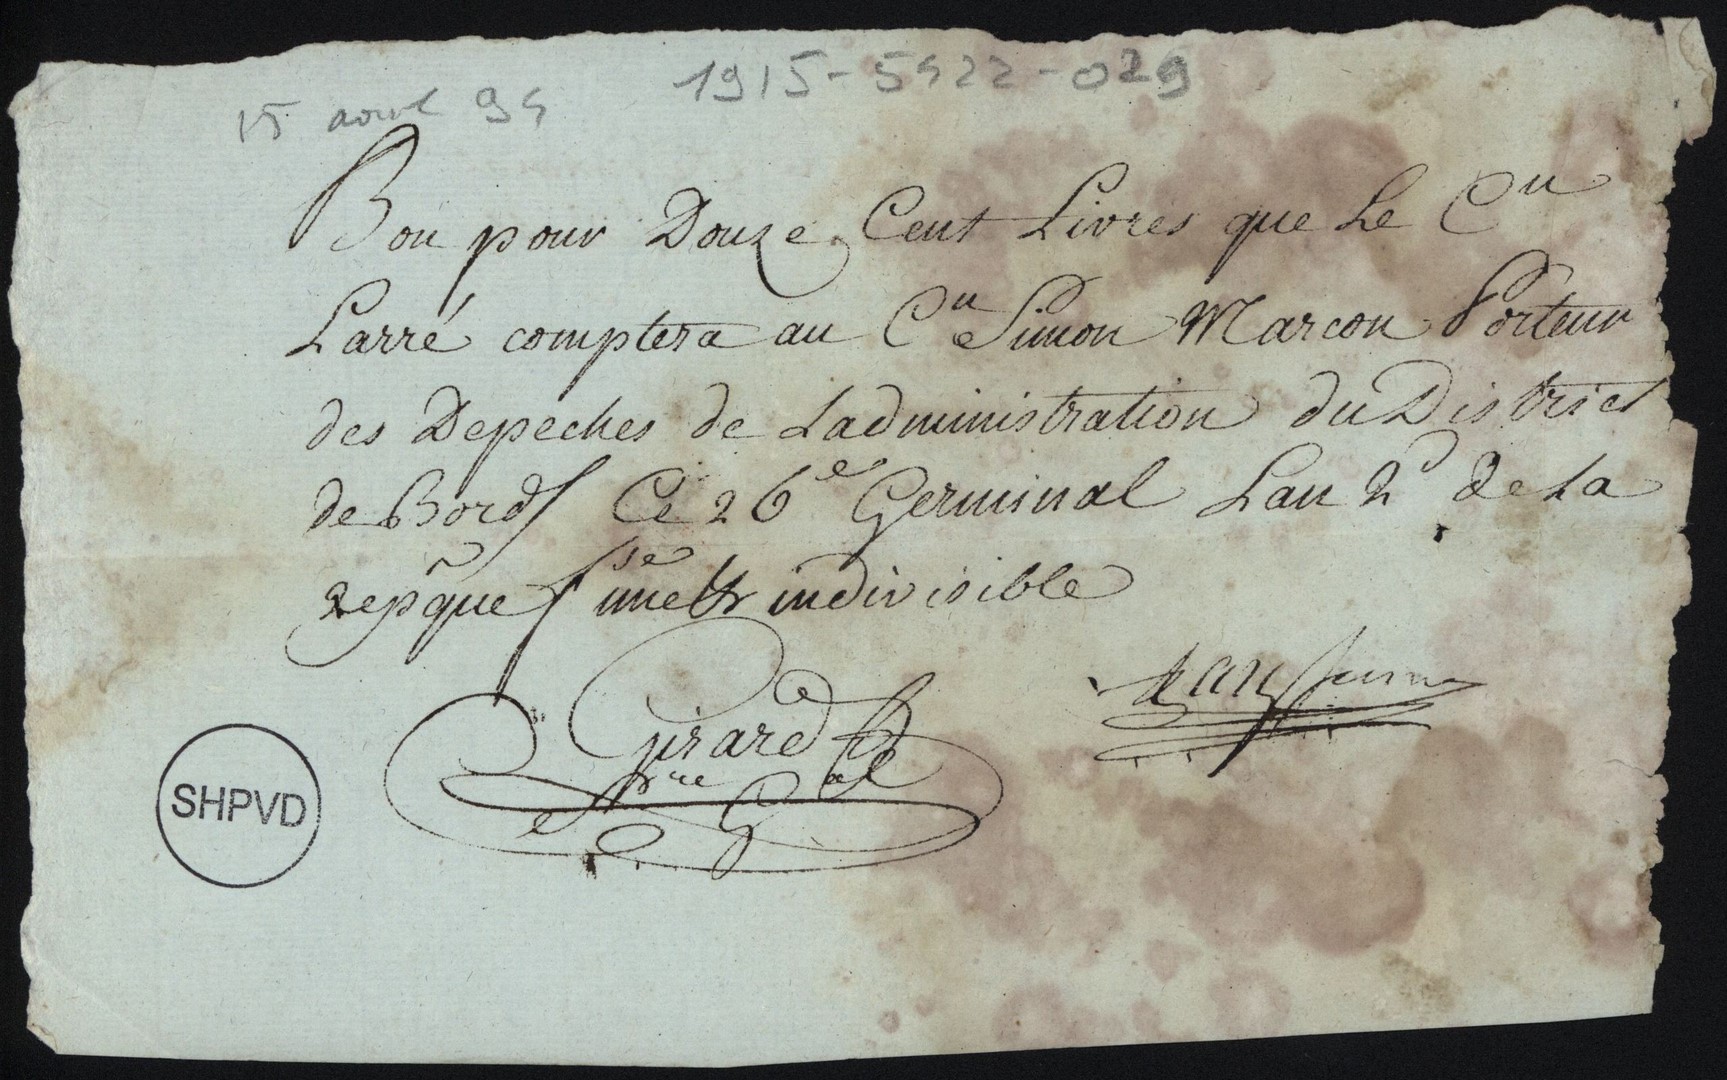 15 avril 94 1915-5422-029
Bon pour Douze Cent Livres que Le Cen
Larré comptera au Cen Simon Marcon Porteur
des Depeches de Ladministration du District
de Bordx Ce 26e Germinal Lan 2d de La
Repque frse une & indivisible
Girard
SHPVD